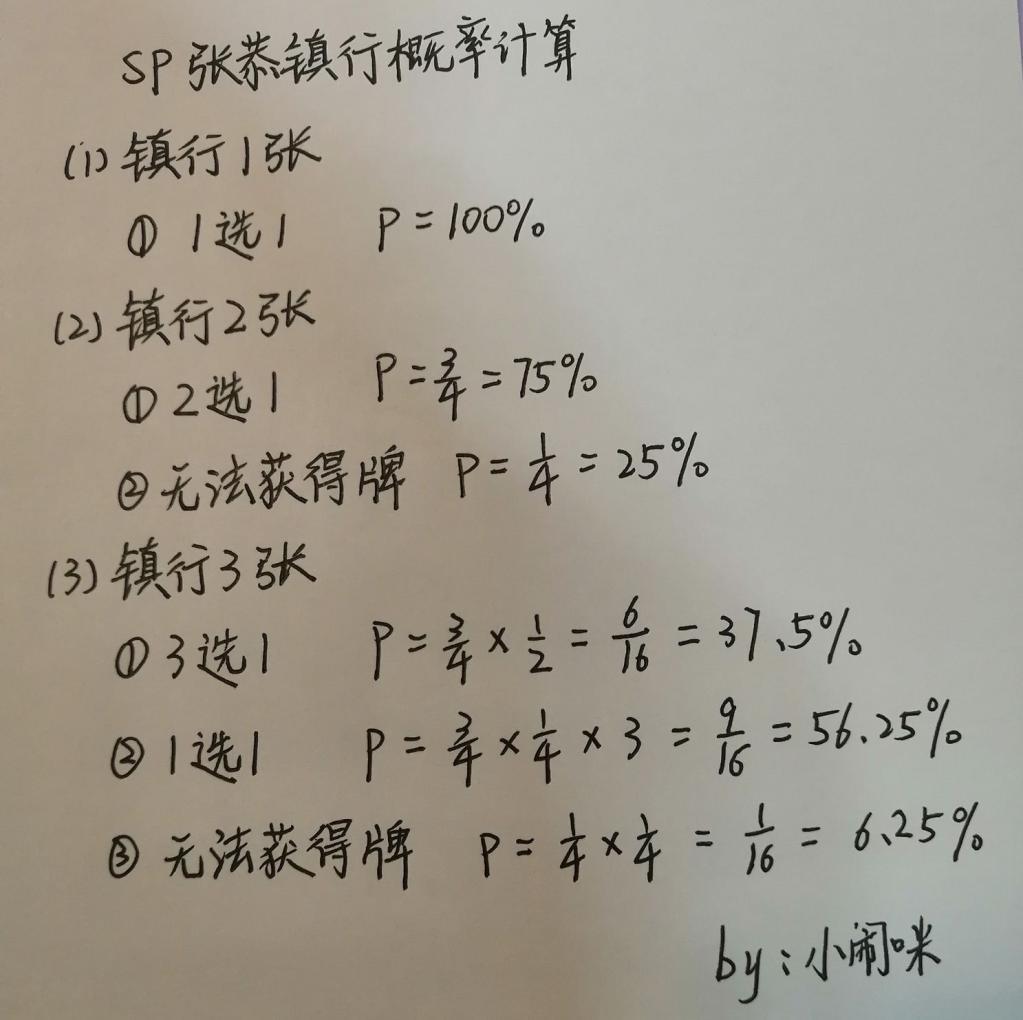 SP张恭镇行概率计算
(1) 镇行1张
① 1选1 P=100%
(2) 镇行2张
① 2选1 P=3/4=75%
② 无法获得牌 P=1/4=25%
(3) 镇行3张
① 3选1 P=3/4×1/2=6/16=37.5%
② 1选1 P=3/4×1/4×3=9/16=56.25%
③ 无法获得牌 P=1/4×1/4=1/16=6.25%
by:小闹咪